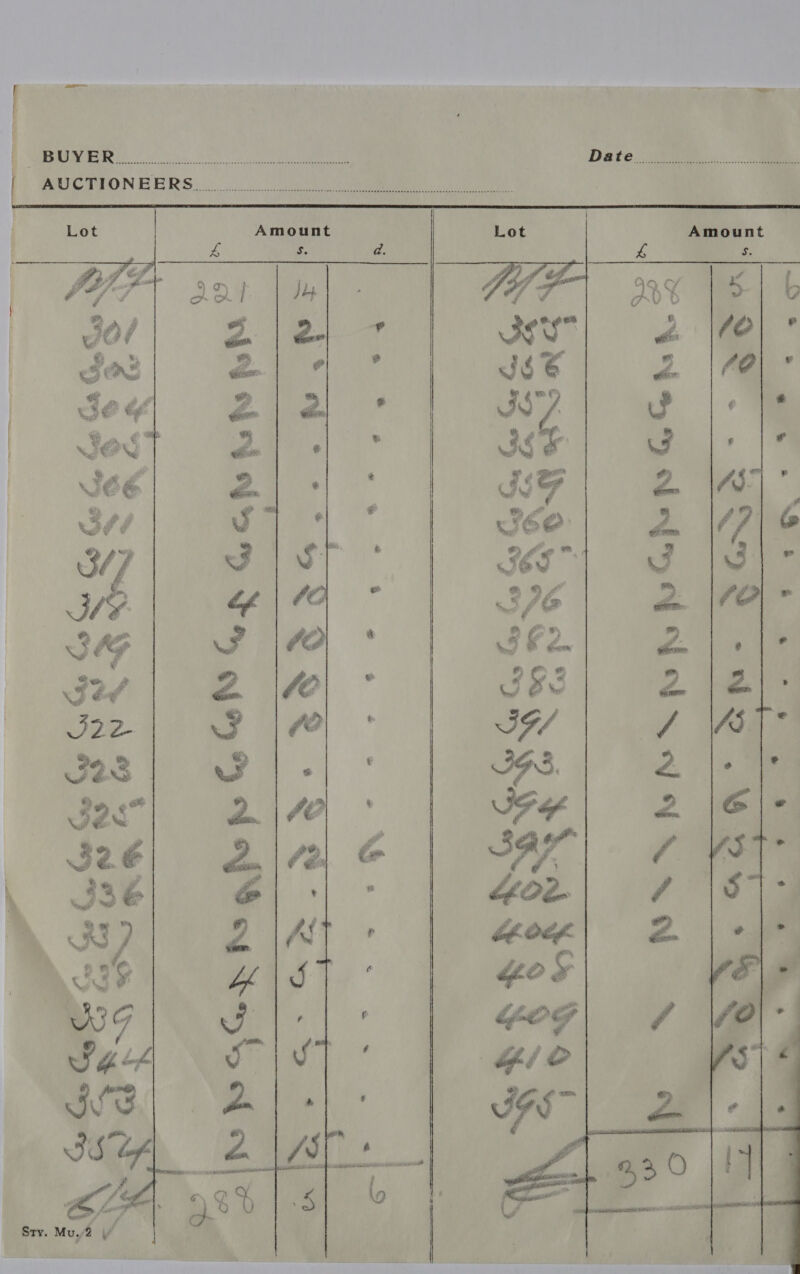 BUYER
Date
AUCTIONEERS
Lot Amount
£ s. d.
B/F 221 14 .
301 2 2 .
303 2 . .
304 2 2 .
305 2 . .
306 2 . .
311 5 . .
317 3 5 .
318 4 10 .
319 3 10 .
321 2 10 .
322 3 10 .
323 3 . .
325 2 10 .
326 2 12 6
336 6 . .
337 2 15 .
338 4 5 .
339 3 . .
344 5 5 .
353 2 . .
354 2 15 .
C/F 288 5 6
Sty. Mu. 2
Lot Amount
£ s.
B/F 288 5 6
355 2 10 .
356 2 10 .
357 3 . .
358 3 . .
359 2 15 .
360 2 17 6
365 3 3 .
376 2 10 .
382 2 . .
383 2 2 .
391 1 15 .
393 2 . .
394 2 6 .
397 1 15 .
402 1 5 .
404 2 . .
408 18 .
409 1 10 .
410 15 .
395 2 . .
£ 330 17